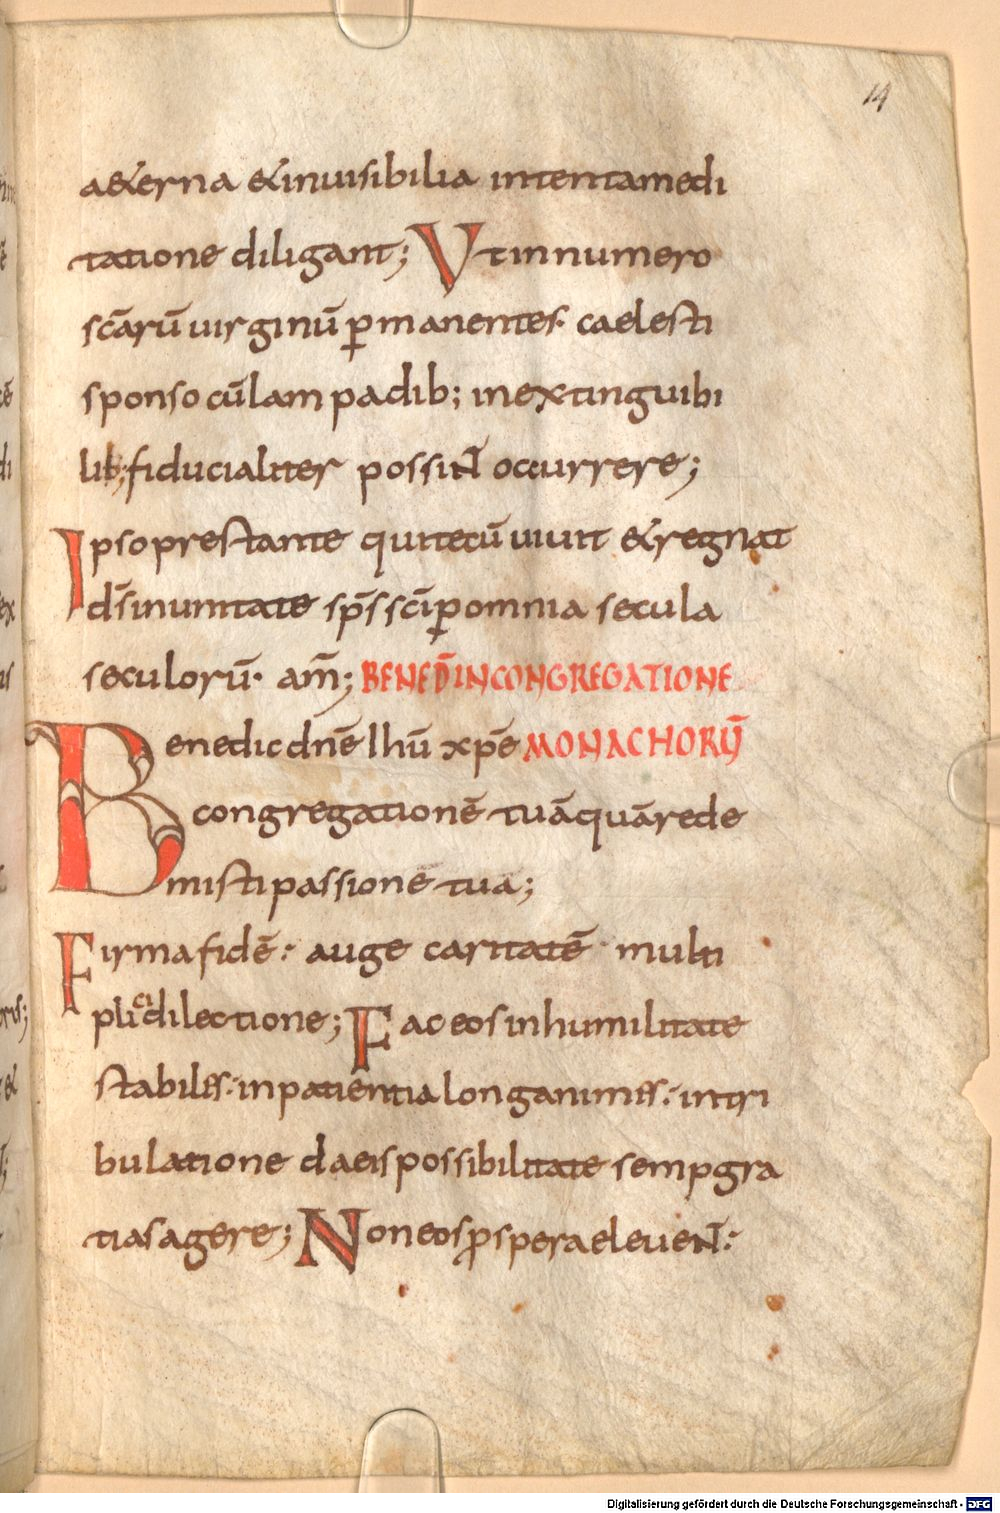 14
a&erna &inuisibilia intentamedi
tatione diligant; Utinnumero
scārū uirginū p̱manentes· caelesti
sponso cūlampadib; inextinguibi
lib; fiducialiter possiNt occurrere;
Ipsoprestante quitecū uiuit &regnat
dsinunitate sp̄s scīp̱omnia secula
seculorū· am̄; BENED̄INCONGREGATIONE
Benedicdnē Ihū xp̄e MONACHORŪ
congregationē tuāquārede
mistipassione tua;
Firmafidē: auge caritatē· multi
plicidilectione; Faceosinhumilitate
stabiles: inpatientialonganimes: intri
bulatione daeispossibilitate sempgra
tiasagere; Noneosꝓsperaeleuent:
Digitalisierung gefördert durch die Deutsche Forschungsgemeinschaft - DFG